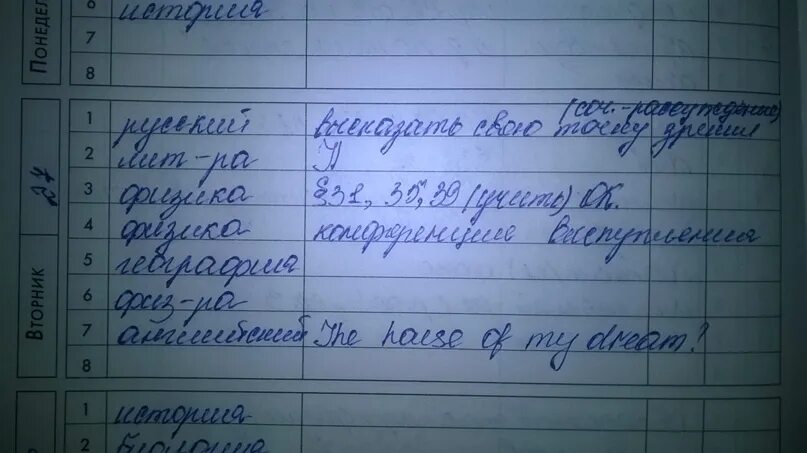 Понедел
6 история
7
8
27
Вторник
(соч.-рассуждение)
1 русский высказать свою точку зрения
2 лит-ра
3 физика §31, 35, 39 (учить) ОК.
4 физика конференция выступления
5 география
6 физ-ра
7 английский The house of my dream?
8
1 история
2 биология